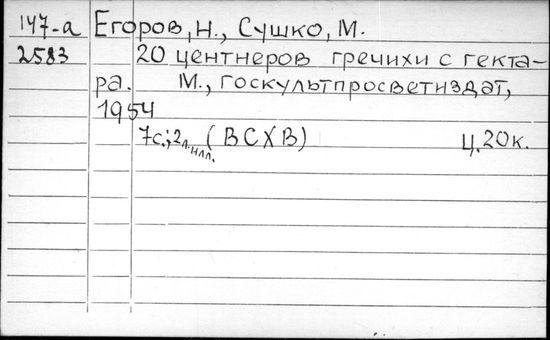 147-а Егоров, Н., Сушко, М.
2583 20 центнеров гречихи с гекта-
ра. М., госкультпросветиздат,
1954
7с.; 2л.илл. (ВСХВ) ц. 20к.